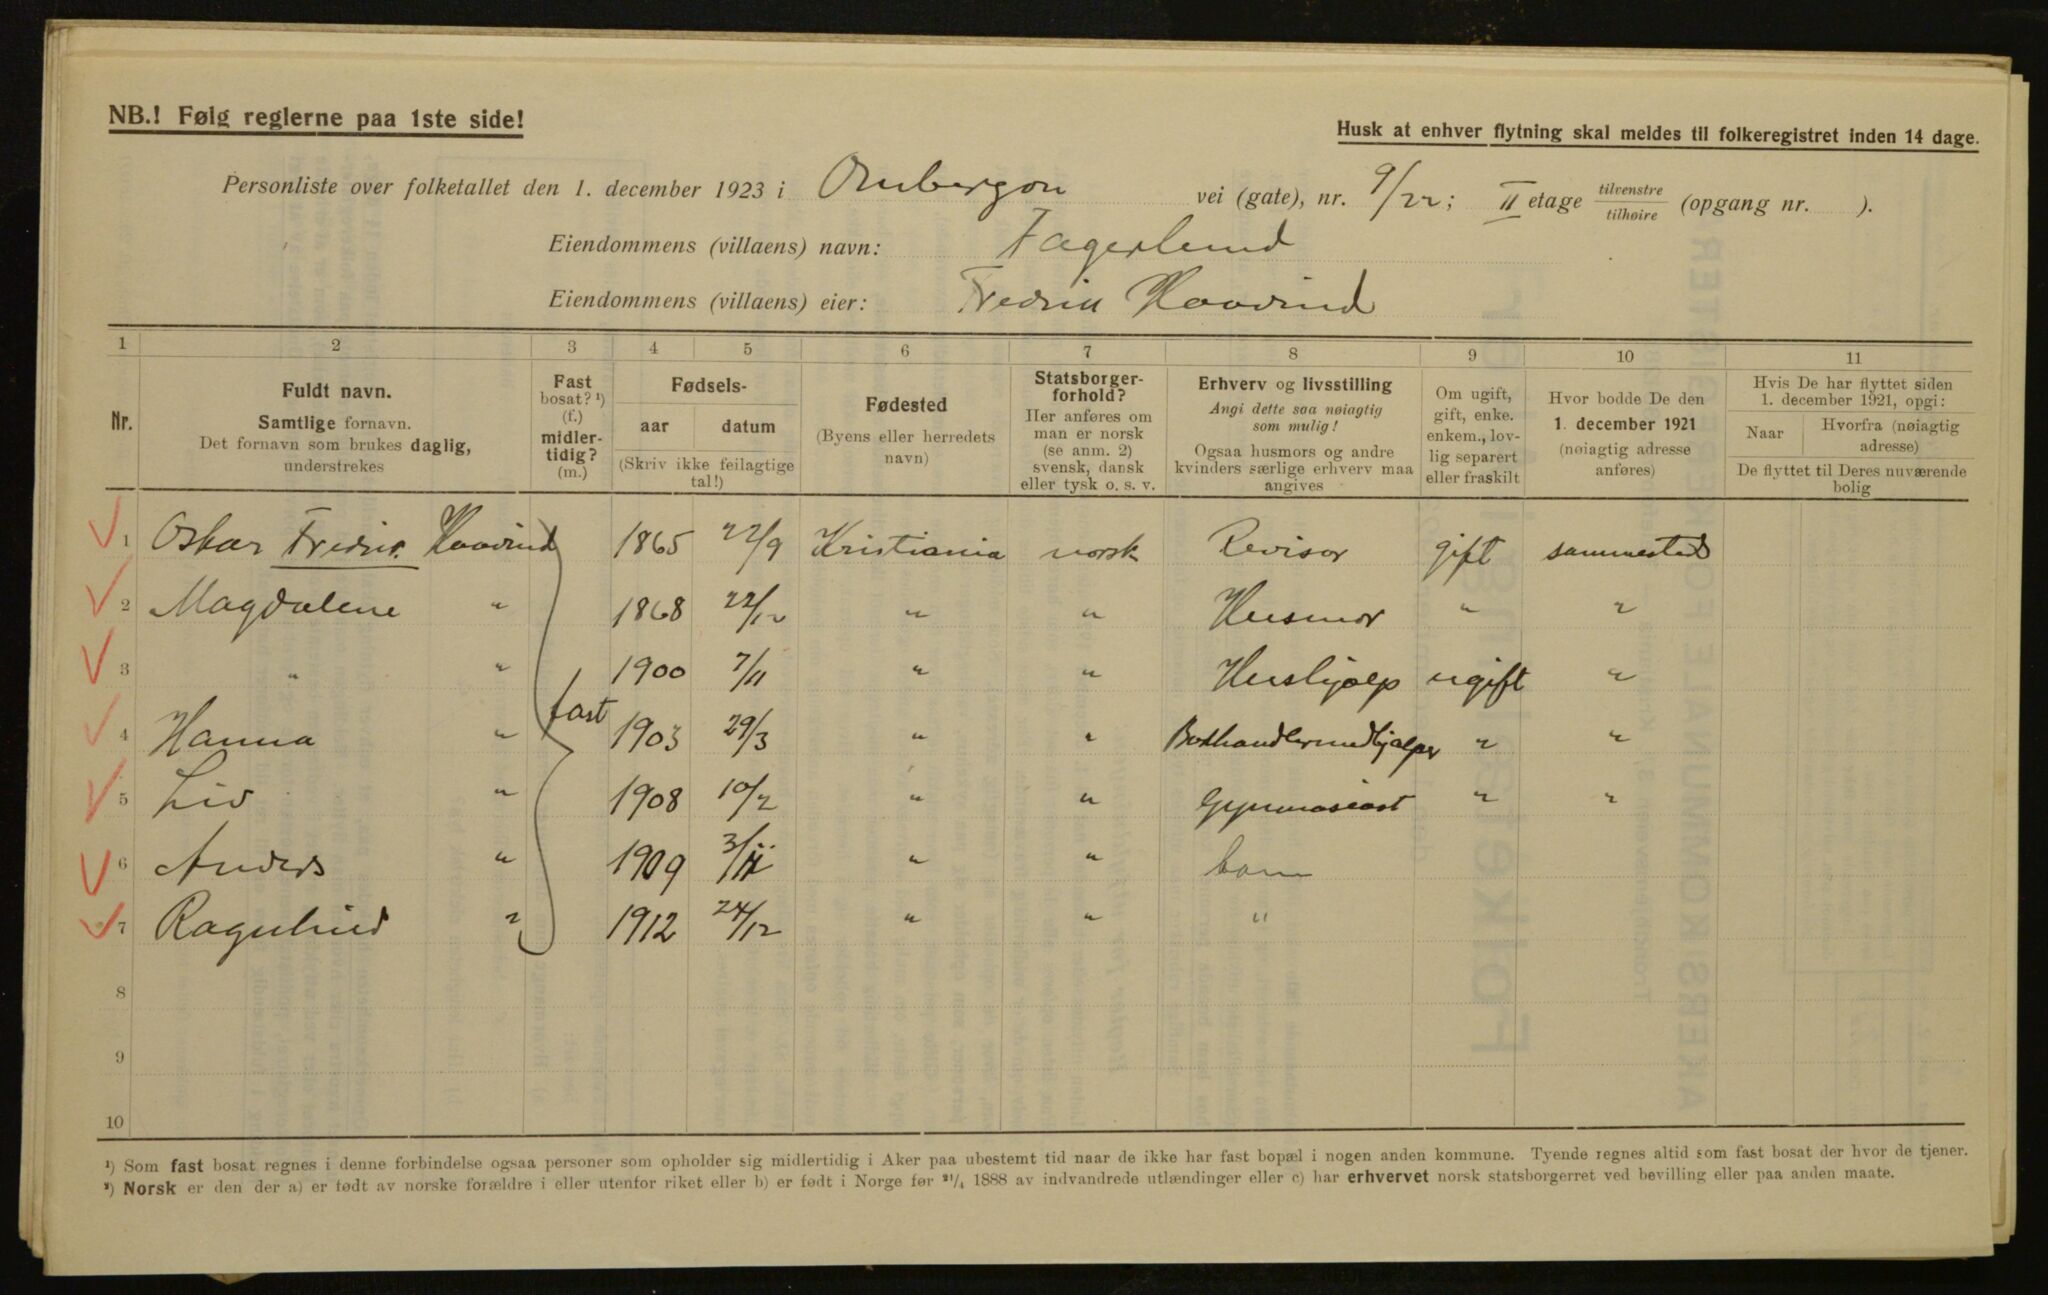 NB.! Følg reglerne paa 1ste side!
Husk at enhver flytning skal meldes til folkeregistret inden 14 dage.
Personliste over folketallet den 1. december 1923 i vei (gate), nr. 9/22; II etage tilvenstre tilhøire (opgang nr. ).
Eiendommens (villaens) navn: Fagerlund
Eiendommens (villaens) eier: Fredrik Haavind
1 2 3 4 5 6 7 8 9 10 11
Nr.
Fuldt navn.
Samtlige fornavn.
Det fornavn som brukes daglig, understrekes
Fast bosat? ¹) (f.) midlertidig? (m.)
Fødsels-
aar datum
(Skriv ikke feilagtige tal!)
Fødested
(Byens eller herredets navn)
Statsborgerforhold?
Her anføres om man er norsk (se anm. 2) svensk, dansk eller tysk o. s. v.
Erhverv og livsstilling
Angi dette saa nøiagtig som mulig!
Ogsaa husmors og andre kvinders særlige erhverv maa angives
Om ugift, gift, enke. enkem., lovlig separert eller fraskilt
Hvor bodde De den 1. december 1921 (nøiagtig adresse anføres)
Hvis De har flyttet siden 1. december 1921, opgi:
Naar Hvorfra (nøiagtig adresse)
De flyttet til Deres nuværende bolig
1 Oskar Fredrik Haavind 1865 22/9 Kristiania norsk Revisor gift sammested
2 Magdalene " 1868 22/12 " " Husmor " "
3 " " 1900 7/11 " " Hushjælp ugift "
fast
4 Hanna " 1903 29/3 " " Bokhandlermedhjælper " "
5 Liv " 1908 10/2 " " Gymnasiast " "
6 Anders " 1909 3/11 " " barn
7 Ragnhild " 1912 24/12 " " "
8
9
10
¹) Som fast bosat regnes i denne forbindelse ogsaa personer som opholder sig midlertidig i Aker paa ubestemt tid naar de ikke har fast bopæl i nogen anden kommune. Tyende regnes altid som fast bosat der hvor de tjener.
²) Norsk er den der a) er født av norske forældre i eller utenfor riket eller b) er født i Norge før ²¹/₁ 1888 av indvandrede utlændinger eller c) har erhvervet norsk statsborgerret ved bevilling eller paa anden maate.